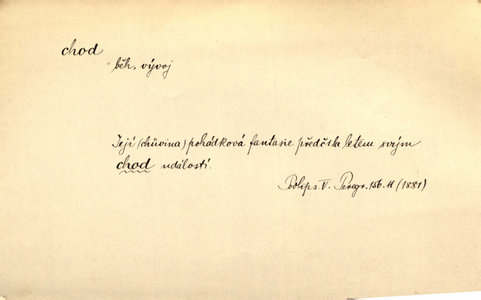 chod
běh, vývoj
Její (chůvina) pohádková fantasie předčila letem svým
chod událostí.
Podlips. V. Peregr. 156. M (1881)